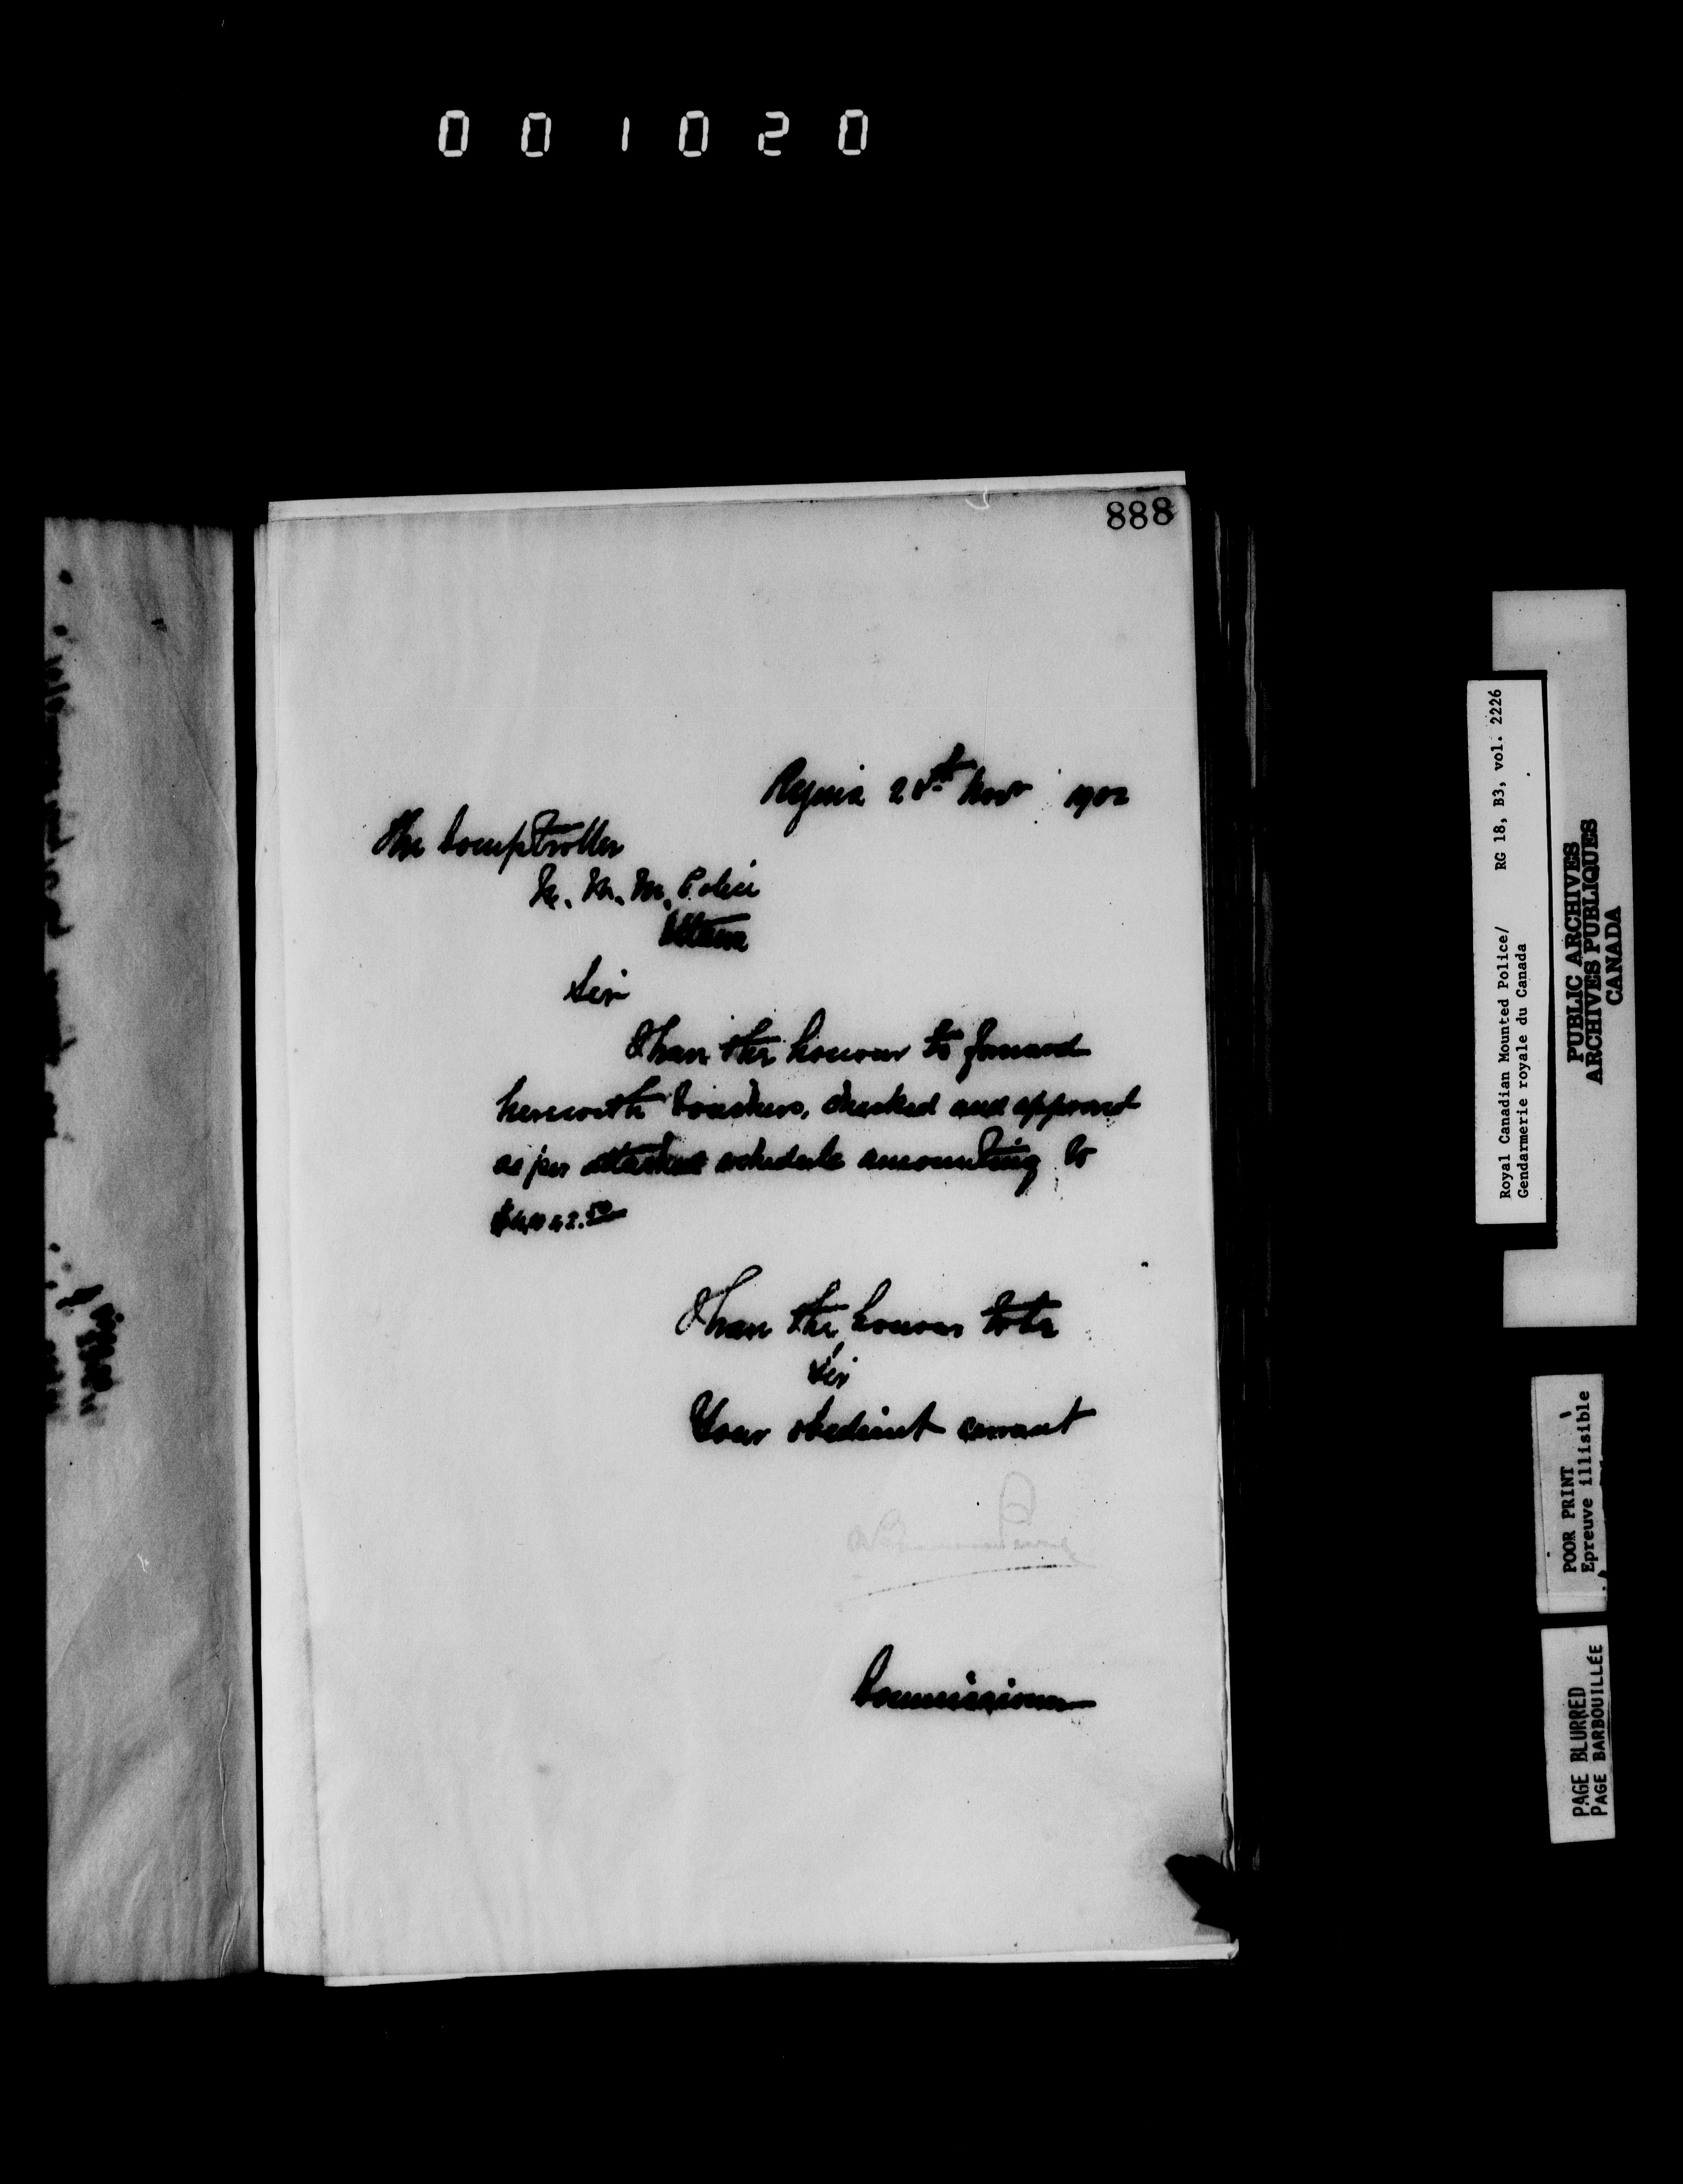 001020
888
Regina 20th Nov 1902
The Comptroller
N. W. M. Police
Ottawa
Sir
I have the honour to forward
herewith Vouchers, checked and approved
as per attached schedule amounting to
I have the honour to be
Sir
Your obedient servant
Commissioner
Royal Canadian Mounted Police/ RG 18, B3, vol. 2226
Gendarmerie royale du Canada
PUBLIC ARCHIVES
ARCHIVES PUBLIQUES
CANADA
POOR PRINT
Epreuve illisible
PAGE BLURRED
PAGE BARBOUILLÉE